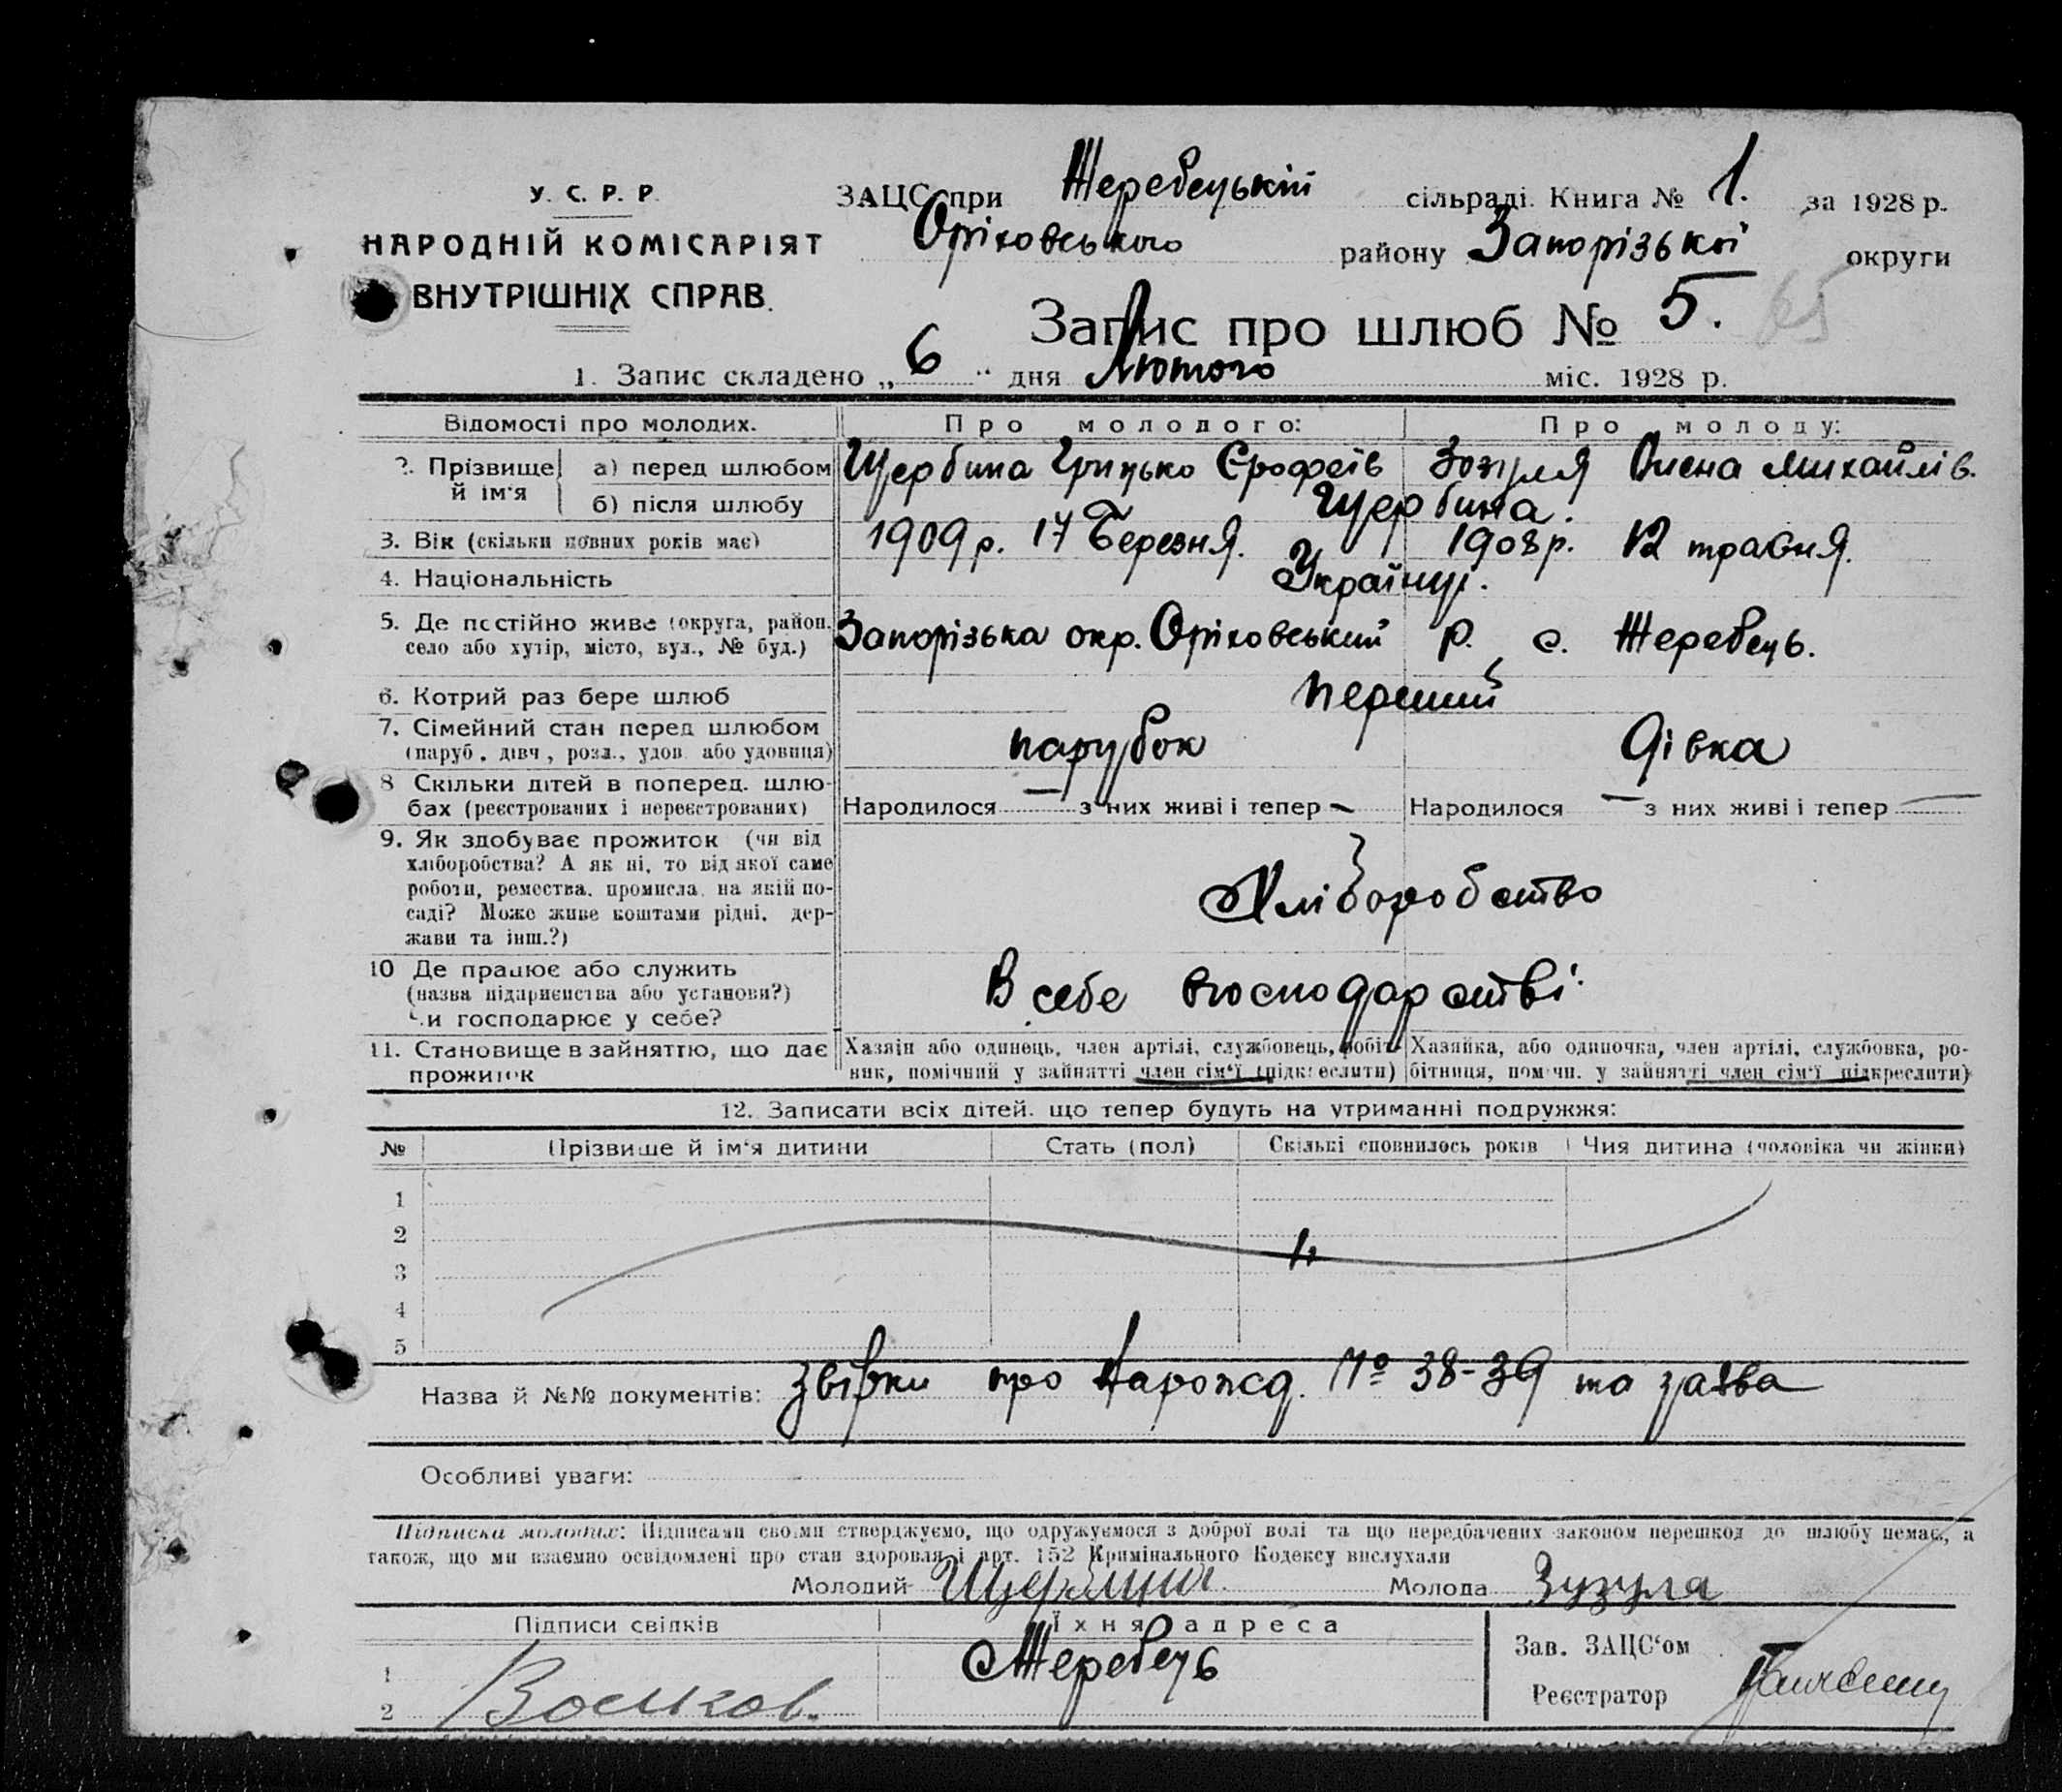 У. С. Р. Р.
НАРОДНІЙ КОМІСАРІЯТ
ВНУТРІШНІХ СПРАВ.
ЗАЦС при Жеребецькій сільраді. Книга № 1. за 1928 р.
Оріховського району Запорізької округи
Запис про шлюб № 5. 65
1. Запис складено „6" дня Лютого міс. 1928 р.
Відомості про молодих. Про молодого: Про молоду:
2. Прізвище й ім'я а) перед шлюбом Щербина Грицько Єрофеїв Зозуля Олена Михайлів.
б) після шлюбу Щербина.
3. Вік (скільки повних років має) 1909 р. 17 Березня. 1908 р. 12 травня.
4. Національність Українці.
5. Де постійно живе (округа, район, Запорізька окр. Оріховський р. с. Жеребець.
село або хутір, місто, вул., № буд.)
6. Котрий раз бере шлюб перший
7. Сімейний стан перед шлюбом парубок дівка
(паруб., дівч, розл., удов. або удовиця)
8 Скільки дітей в поперед. шлю-
бах (реєстрованих і нереєстрованих) Народилося — з них живі і тепер — Народилося — з них живі і тепер —
9. Як здобуває прожиток (чи від
хліборобства? А як ні, то від якої саме
роботи, ремества, промисла, на якій по-
саді? Може живе коштами рідні, дер-
жави та інш.?)
Хліборобство
10 Де працює або служить
(назва підприємства або установи?)
Чи господарює у себе?
В себе вгосподарстві.
11. Становище в зайняттю, що дає
прожиток
Хазяїн або одинець, член артілі, службовець, робіт-
ник, помічний у зайнятті член сім'ї (підкреслити)
Хазяйка, або одиночка, член артілі, службовка, ро-
бітниця, помічн. у зайнятті член сім'ї підкреслити)
12. Записати всіх дітей, що тепер будуть на утриманні подружжя:
№ Прізвище й ім'я дитини Стать (пол) Скількі сповнилось років Чия дитина (чоловіка чи жінки)
1
2
3
4
5
Назва й №№ документів: звірки про Нарожд. № 38-39 та заява
Особливі уваги:
Підписка молодих: Підписами своїми стверджуємо, що одружуємося з доброї волі та що передбачених законом перешкод до шлюбу немає, а
також, що ми взаємно освідомлені про стан здоровля і арт. 152 Кримінального Кодексу вислухали
Молодий Щербина Молода Зузула
Підписи свідків Їхня адреса
1
2 Волков.
с Жеребець
Зав. ЗАЦС'ом
Реєстратор